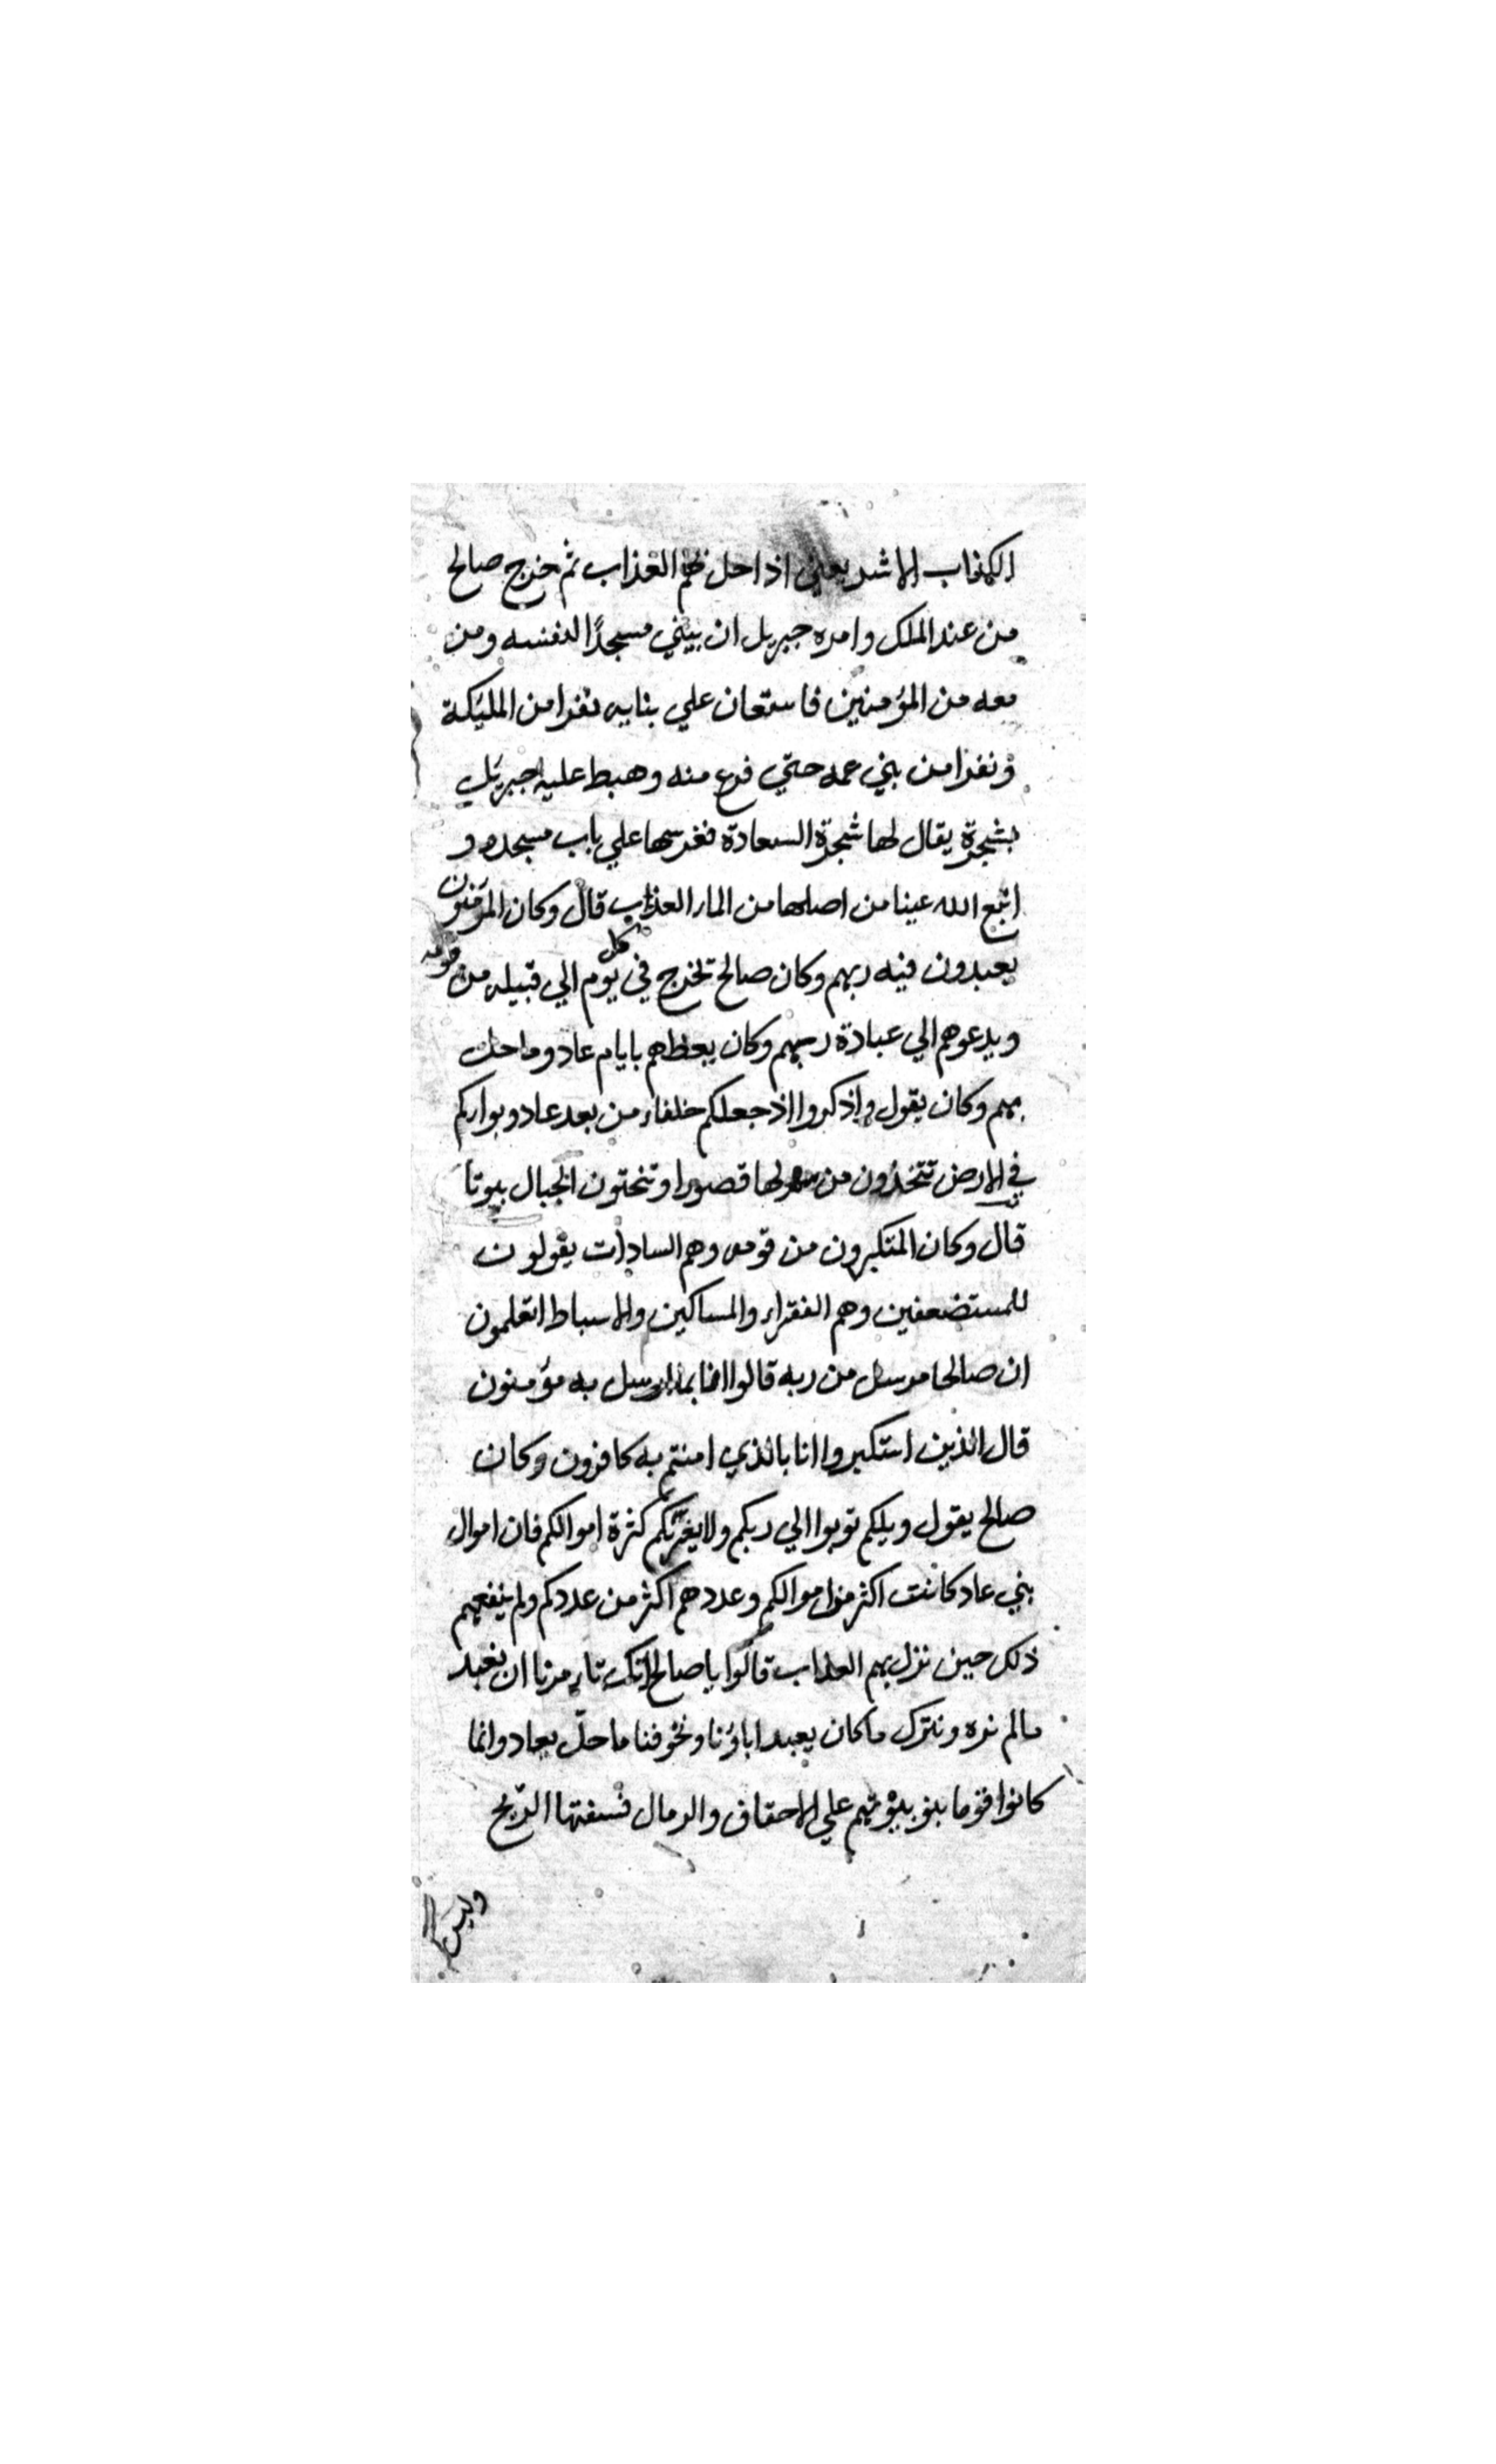 الكذاب الاشر يعني اذا حل بهم العذاب ثم خرج صالح
من عند الملك وامره جبريل ان يبني مسجدًا لنفسه ومن
معه من المؤمنين فاستعان علي بنايه نفرا من المليكة
ونفرا من بني عمه حتي فرغ منه وهبط عليه جبريل
بشجرة يقال لها شجرة السعادة فغرسها علي باب مسجده و
انبع الله عينا من اصلها من الماء العذب قال وكان المؤمنون
يعبدون فيه ربهم وكان صالح يخرج في كل يوم الي قبيله من قومه
ويدعوهم الي عبادة ربهم وكان يعظهم بايام عاد وما حل
بهم وكان يقول واذكروا اذ جعلكم خلفاء من بعد عاد وبواركم
في الارض تتخذون من سهولها قصورا وتنحتون الجبال بيوتا
قال وكان المتكبرون من قومه وهم السادات يقولون
للمستضعفين وهم الفقراء والمساكين والاسباط اتعلمون
ان صالحا مرسل من ربه قالوا انا بما ارسل به مؤمنون
قال الذين استكبروا انا بالذي امنتم به كافرون وكان
صالح يقول ويلكم توبوا الي ربكم ولا يغرّنكم كثرة اموالكم فان اموال
بني عاد كانت اكثر من اموالكم وعددهم اكثر من عددكم ولم ينفعهم
ذلك حين نزل بهم العذاب قالوا يا صالح انك تامرنا ان نعبد
مالم نره ونترك ما كان يعبد اباؤنا وتخوفنا ما حلّ بعاد وانما
كانوا قوما بنو بيوتهم علي الاحقاف والرمال فنسفتها الريح
وليس